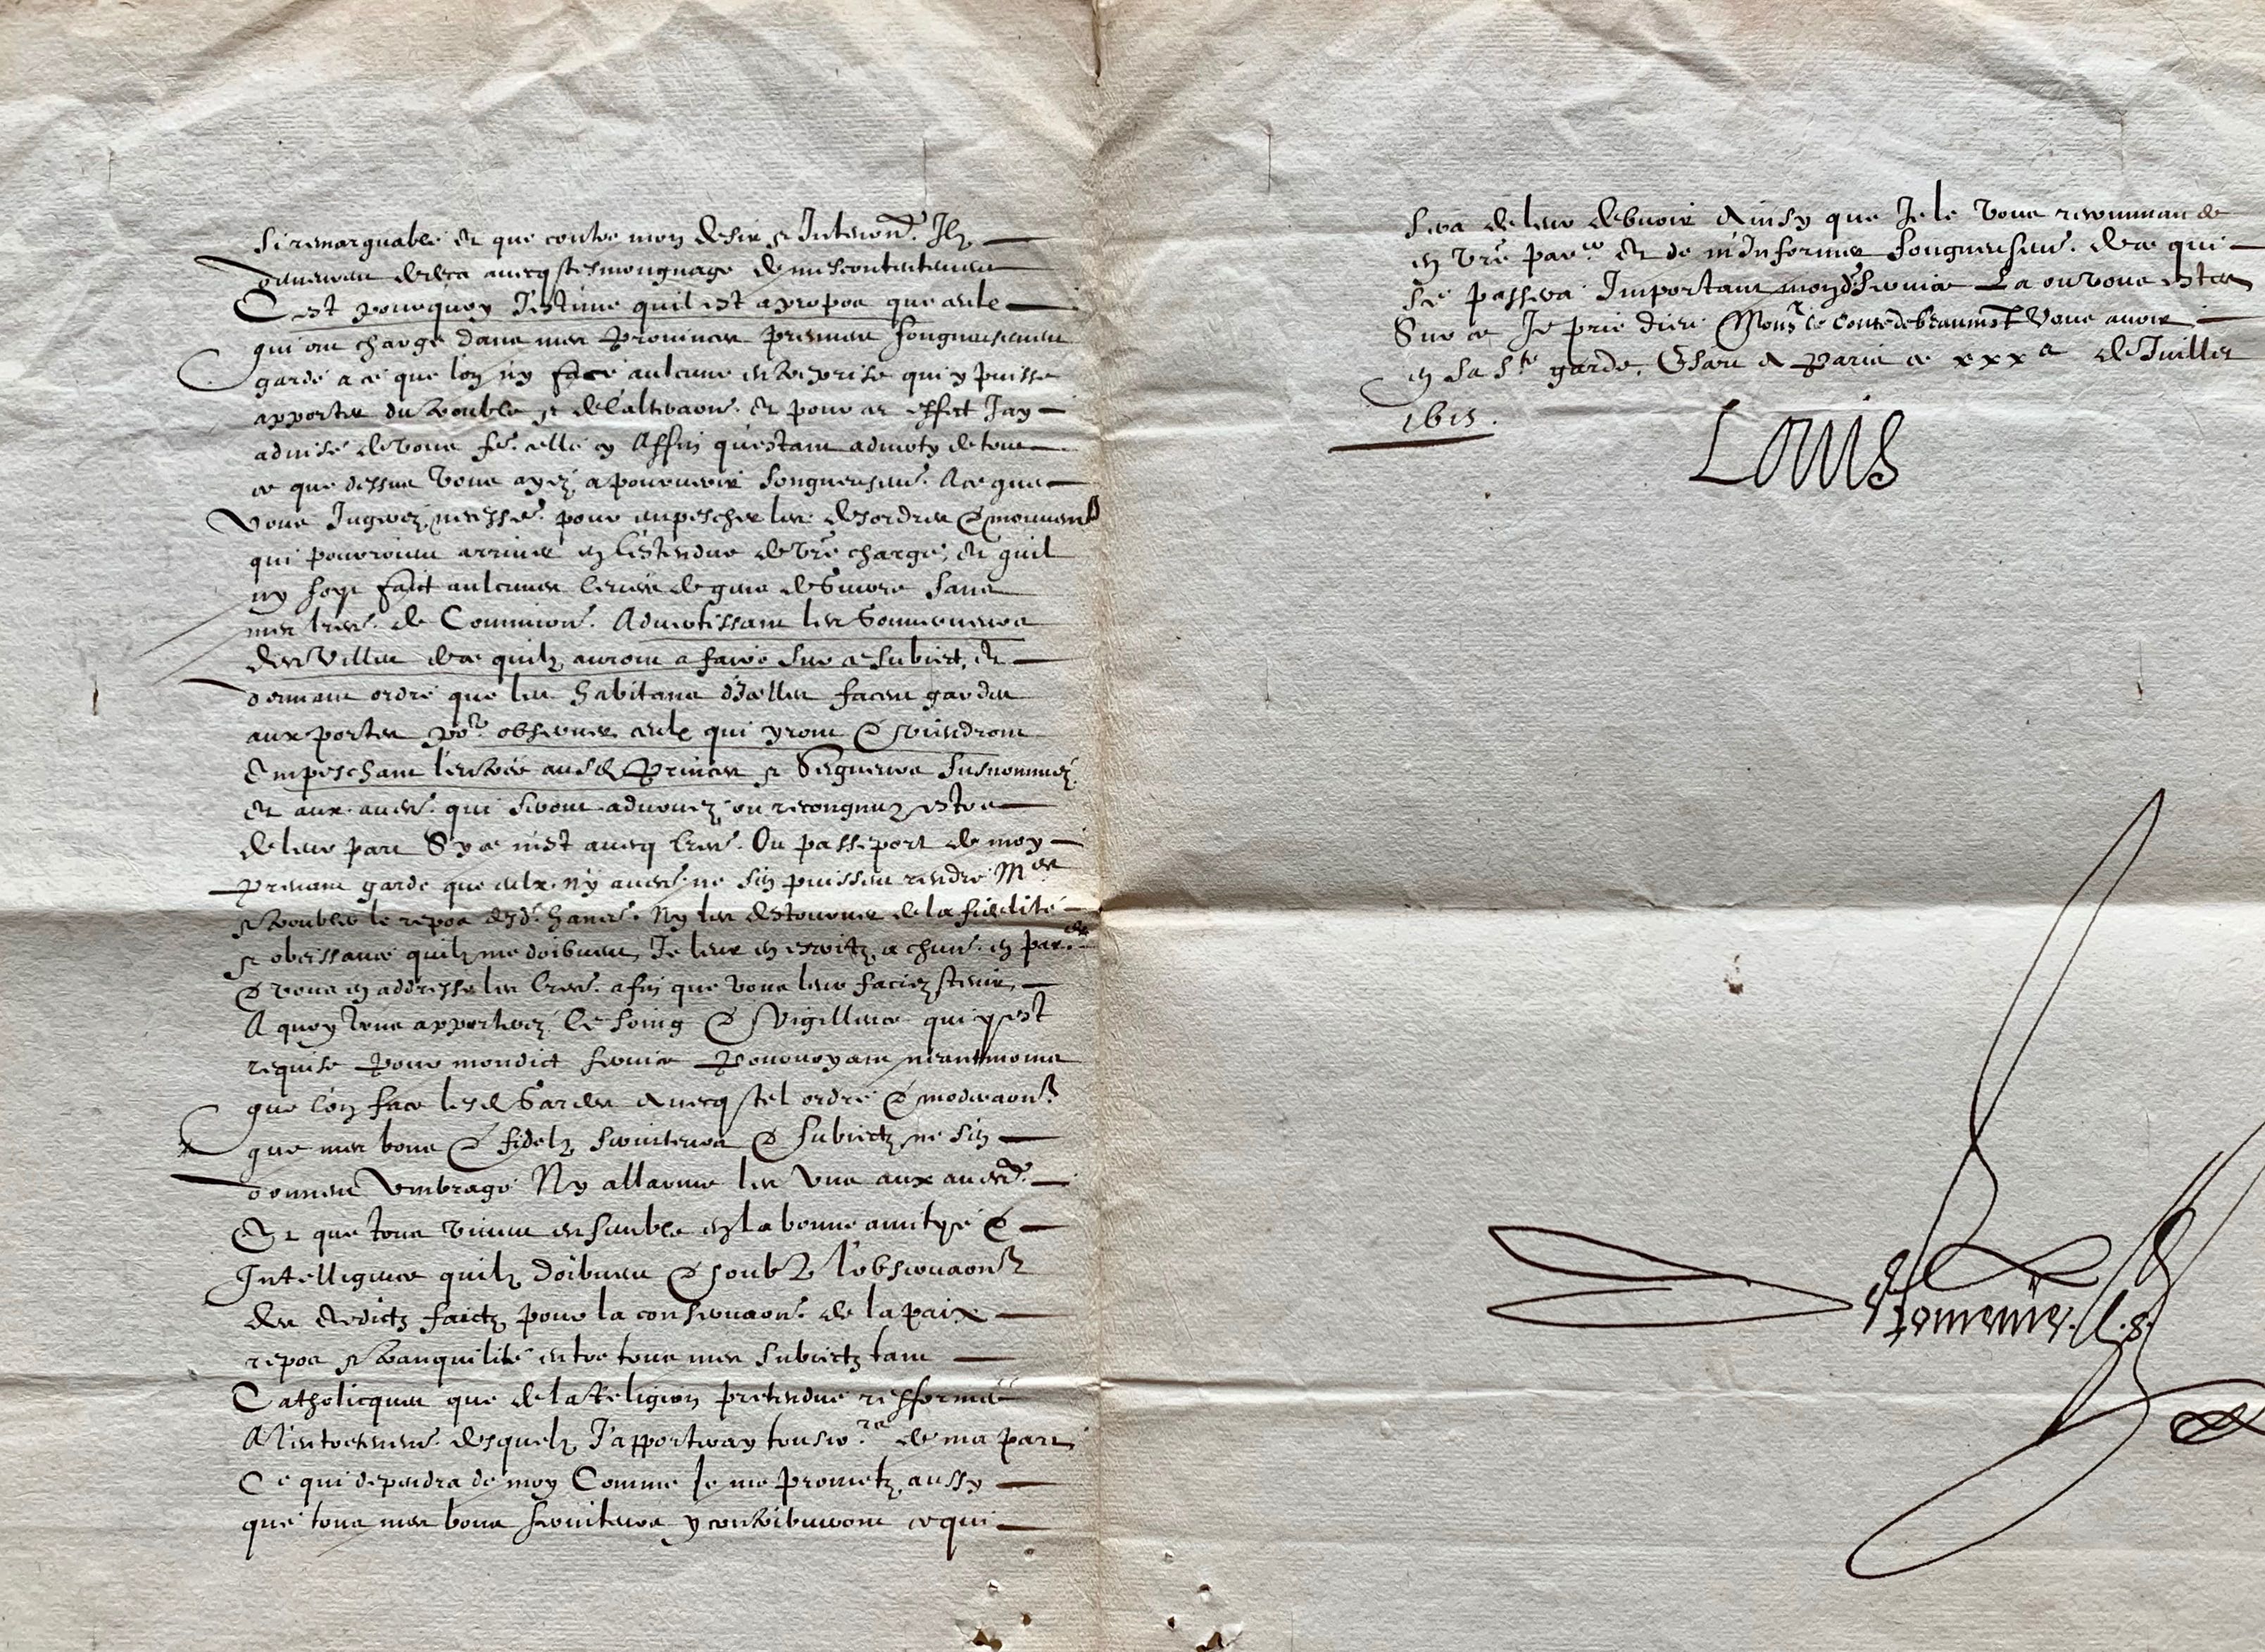 si remarquable et que contre mon desir et Intention. Ilz
donneront dedans avecq tesmoignage de mescontentement
C'est pourquoy J'estime qu'il est a propos que ceulx
qui ont charge dans mes Provinces prennent songneusement
garde a ce que lon ny face aulcune entreprise qui y puisse
apporter du trouble et de l'alteraon. Et pour cet effect Jay
advisé de vous fe. celle cy Affin qu'estant adverty de tout
ce que dessus vous ayez a pourveoir songneusemt. A ce que
vous Jugerez necessre. pour empescher les desordres & mouvemts
qui pourroient arriver en l'estendue de vre charge, et quil
ny soyt faict aulcunes levées de gens de Guerre sans
mes lres. de Commion. Advertissant les Gouverneurs
des Villes de ce quilz auront a faire sur ce subiect, et
donnant ordre que les habitans d'Icelles facent gardes
aux portes por. observer ceulx qui yront & viendront
Empeschant l'entrée ausd. Princes et Seigneurs susnommez
Et aux autres. qui seront advouez ou recongnuz estre
de leur part Sy ce n'est avecq lres. Ou passeport de moy
Prenant garde que eulx ny autres. ne s'en puissent rendre Mes
et troubler le repos desd. hans. Ny les destourner de la fidelité
et obeissance quilz me doibvent, Je leur en escritz a chun. en par.er
& vous en addresse les lres. afin que vous leur faciez tenir,
A quoy vous apporterez le soing & vigillence qui y est
requise pour mondict service Pourvoyant neantmoins
que l'on face lesd. Gardes avecq tel ordre & moderaon.
que mes bons & fidelz serviteurs & subiectz ne s'en
donnent Umbrage Ny allarme les uns aux autres.
Et que tous vivent ensemble en la bonne amityé &
Intelligence quilz doibvent & soubz l'observaon
des Edictz faictz pour la conservaon. de la paix
repos et tranquilité entre tous mes subiectz tant
Catholicques que de la Religion pretendue refformée
A l'entretenemt. desquelz J'apporteray tousio.rs de ma part
Ce qui dependra de moy Comme Je me prometz aussy
que tous mes bons serviteurs y contribueront ce qui
sera de leur debvoir Ainsy que Je le vous recommande
en vre par.er Et de m'Informer songneusemt. de ce qui
se passera Important mond. service La ou vous estes
Sur ce Je prie dieu Monsr. le Conte de beaumont Vous avoir
en sa Ste garde, Escrit A Paris ce xxxe de Juillet
1615.
Louis
Delomenie.